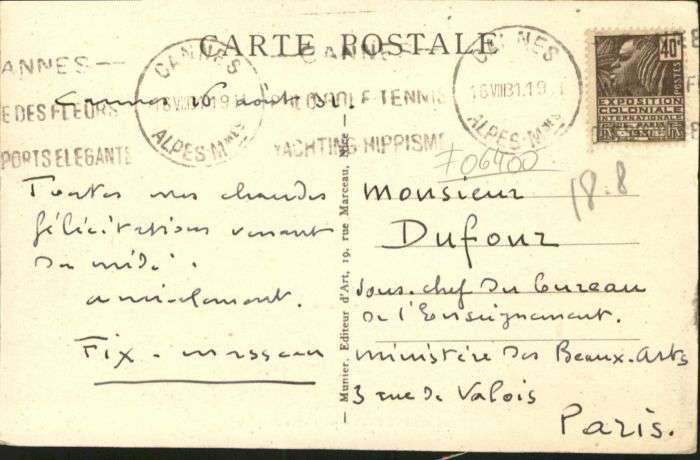 CARTE POSTALE
CANNES
VILLE DES FLEURS
SPORTS ELEGANTS
CANNES
16 VIII 31
ALPES Mmes
CANNES
GOLF TENNIS
YACHTING HIPPISME
CANNES
16 VIII 31 19
ALPES Mmes
40c
POSTES
EXPOSITION
COLONIALE
INTERNATIONALE
PARIS
1931
Cannes 16 août 31.
F06400
18.8
Toutes mes chaudes
félicitations venant
du midi.
amicalement.
Fix-Masseau
— Munier, Editeur d'Art, 19, rue Marceau, Nice —
Monsieur
Dufour
sous-chef du bureau
de l'Enseignement.
ministère des Beaux-Arts
3 rue de Valois
Paris.